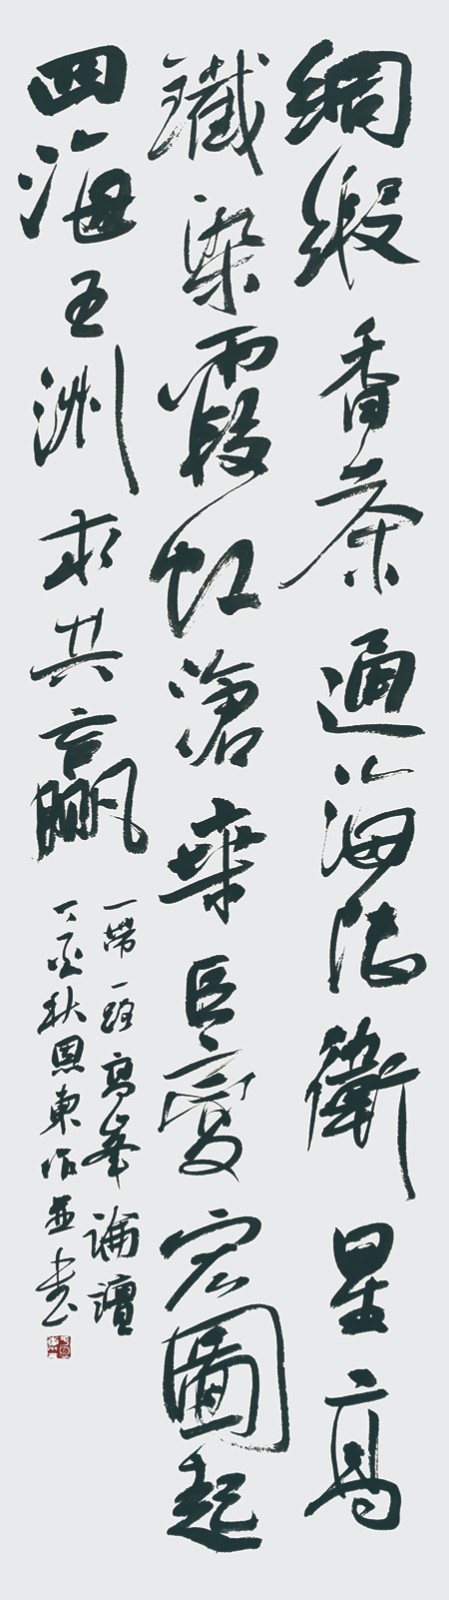 綢緞香茶通海陸衛星高
鐵染霞虹滄桑巨變宏圖起
四海五洲求共贏
一帶一路高峯論壇
丁酉秋恩東作並書